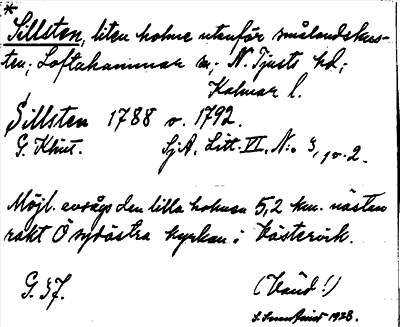 *
Sillsten, liten holme utanför smålandskus-
ten; Loftahammar sn; N. Tjusts hd;
Kalmar l.
Sillsten 1788 o. 1792.
G. Klint. Sj.A. Litt. VI, N:o 3, 1 o. 2.
Möjl. avsågs den lilla holmen 5,2 km. nästan
rakt Ö sydöstra kyrkan i Västervik.
G. Ij. (Vänd!)
1928.